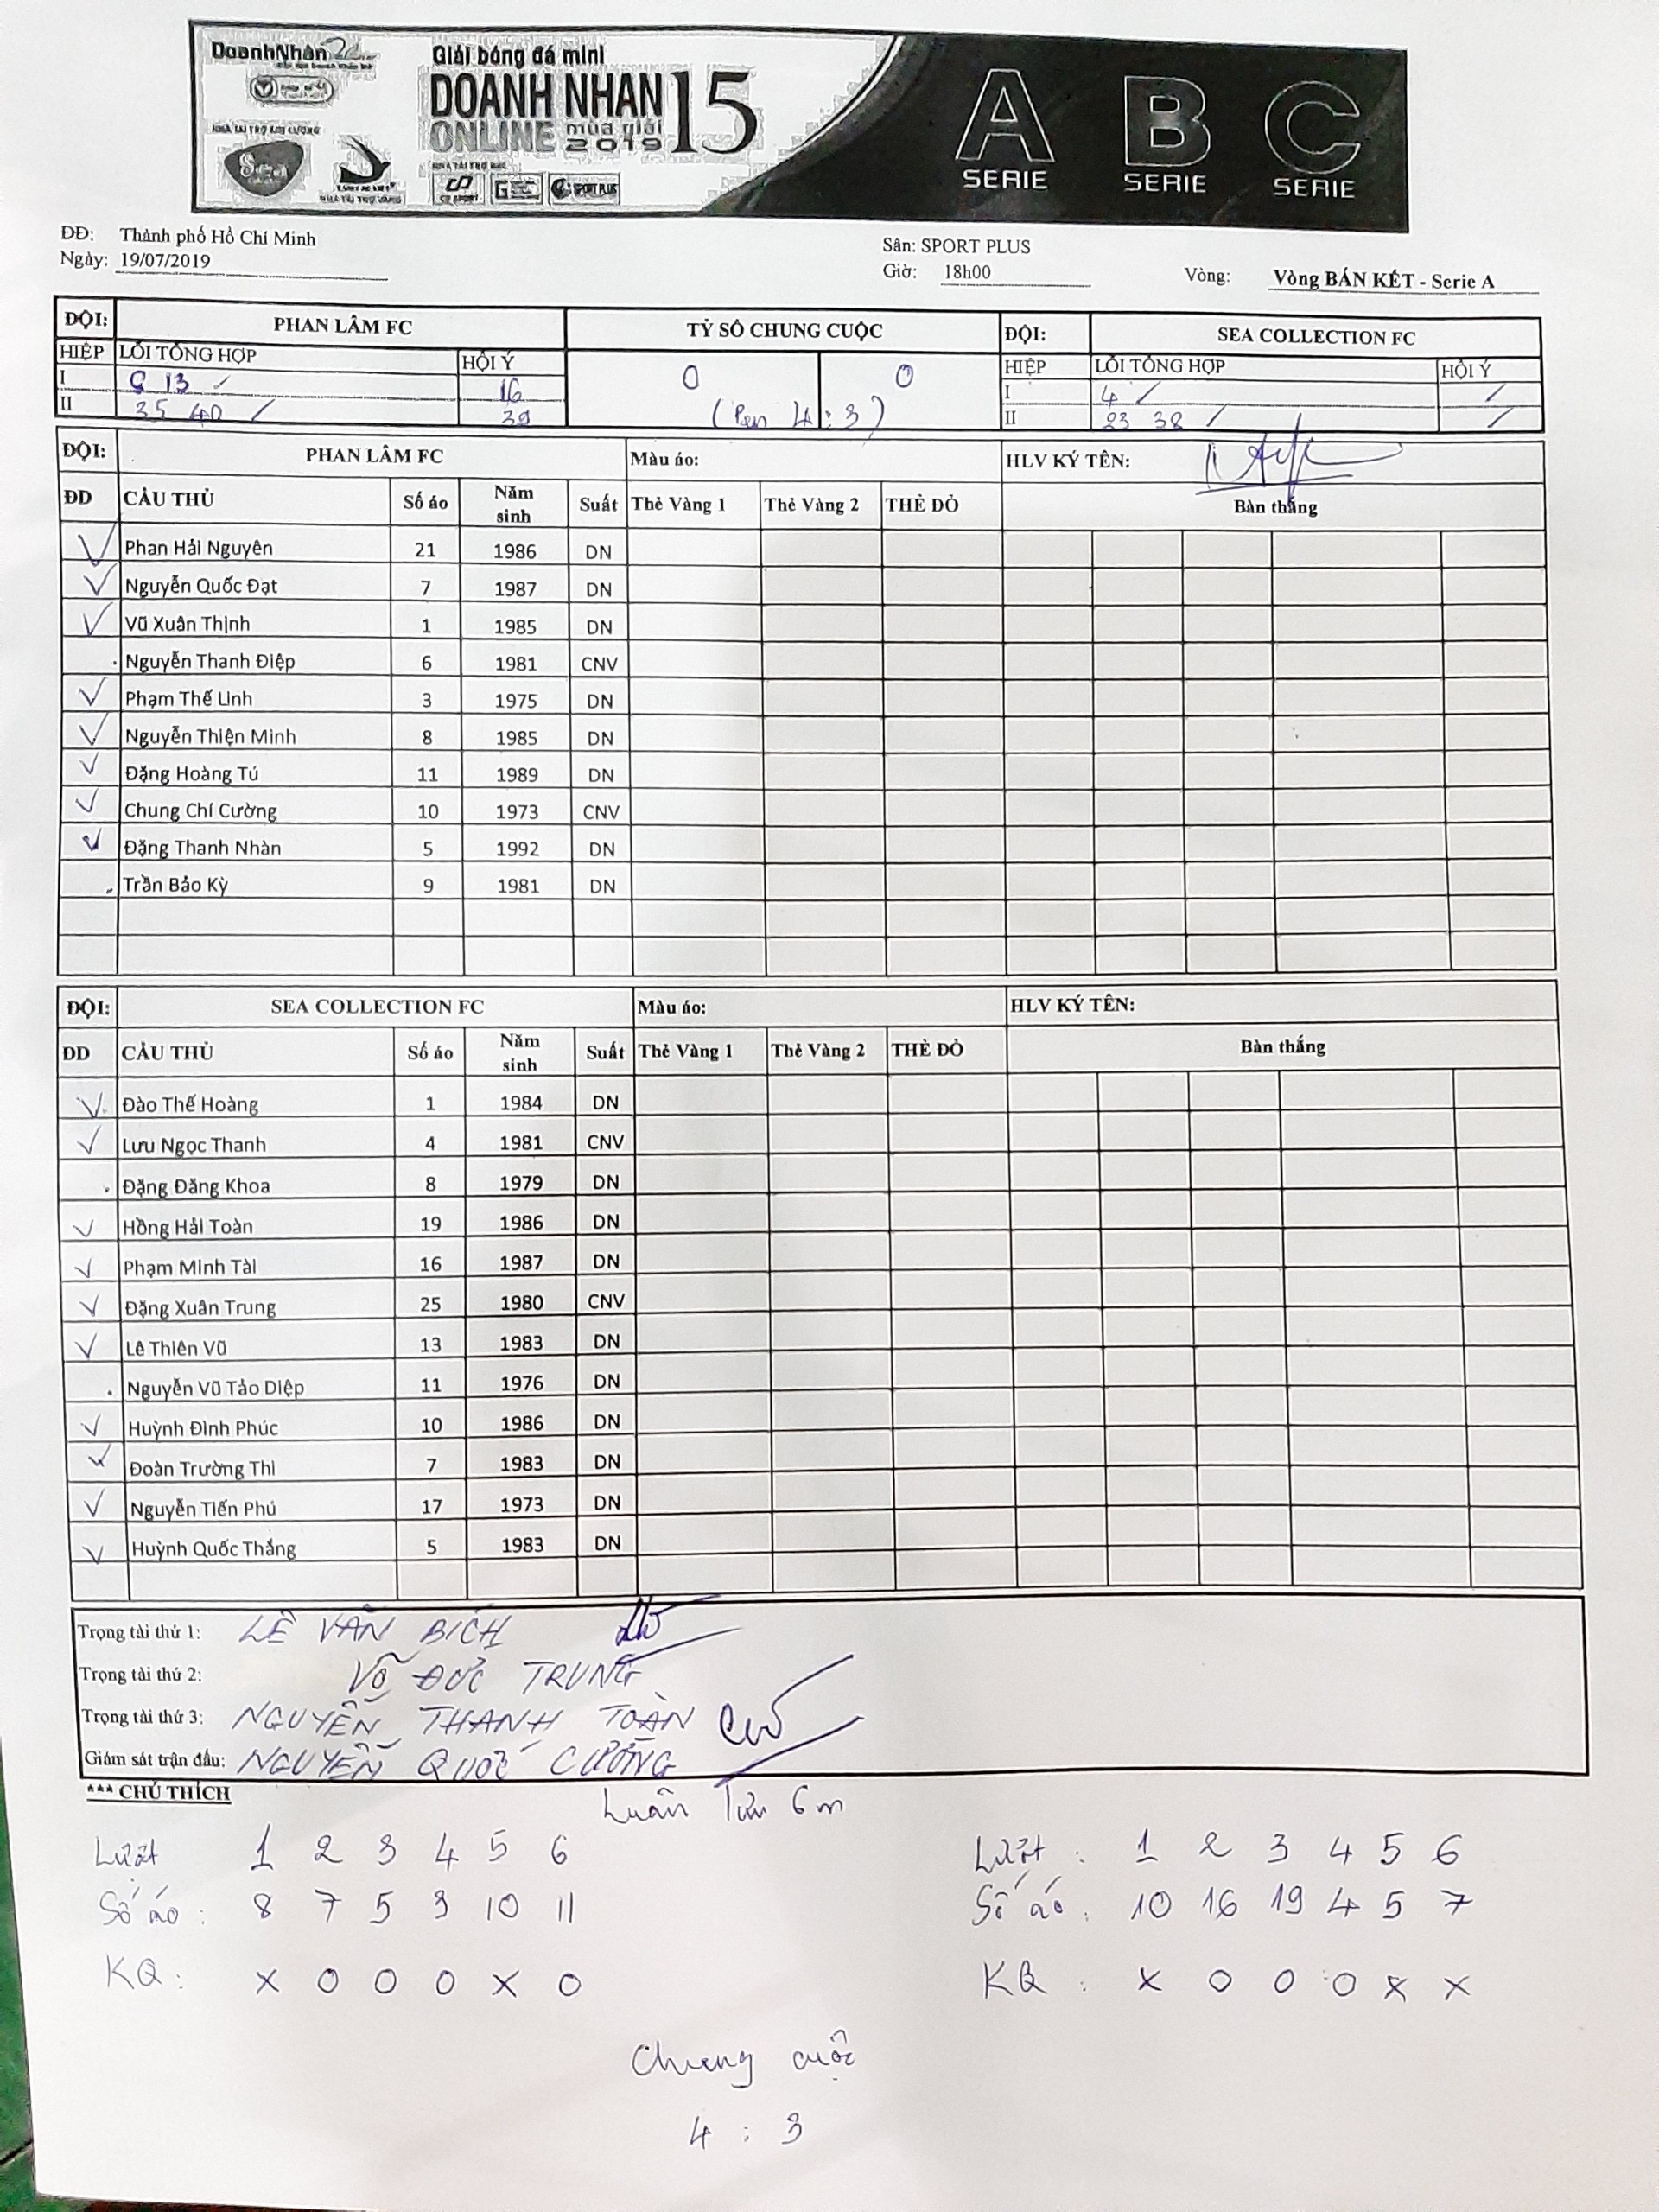 DoanhNhân
Giải bóng đá mini
DOANH NHAN 15
ONLINE mùa giải 2019
NHÀ TÀI TRỢ KIM CƯƠNG
Sea
NHÀ TÀI TRỢ VÀNG
CP SPORT
SPORT PLUS
A SERIE B SERIE C SERIE
ĐĐ: Thành phố Hồ Chí Minh
Sân: SPORT PLUS
Ngày: 19/07/2019 Giờ: 18h00 Vòng: Vòng BÁN KẾT - Serie A
ĐỘI: PHAN LÂM FC TỶ SỐ CHUNG CUỘC ĐỘI: SEA COLLECTION FC
HIỆP LỖI TỔNG HỢP HỘI Ý 0 0 HIỆP LỖI TỔNG HỢP HỘI Ý
I 13 / 16 I 4 / /
II 35 40 / 39 (Pen 4 : 3) II 23 38 / /
ĐỘI: PHAN LÂM FC Màu áo: HLV KÝ TÊN:
ĐD CẦU THỦ Số áo Năm sinh Suất Thẻ Vàng 1 Thẻ Vàng 2 THẺ ĐỎ Bàn thắng
Phan Hải Nguyên 21 1986 DN
Nguyễn Quốc Đạt 7 1987 DN
Vũ Xuân Thịnh 1 1985 DN
Nguyễn Thanh Điệp 6 1981 CNV
Phạm Thế Linh 3 1975 DN
Nguyễn Thiện Minh 8 1985 DN
Đặng Hoàng Tú 11 1989 DN
Chung Chí Cường 10 1973 CNV
Đặng Thanh Nhàn 5 1992 DN
Trần Bảo Kỳ 9 1981 DN
ĐỘI: SEA COLLECTION FC Màu áo: HLV KÝ TÊN:
ĐD CẦU THỦ Số áo Năm sinh Suất Thẻ Vàng 1 Thẻ Vàng 2 THẺ ĐỎ Bàn thắng
Đào Thế Hoàng 1 1984 DN
Lưu Ngọc Thanh 4 1981 CNV
Đặng Đăng Khoa 8 1979 DN
Hồng Hải Toàn 19 1986 DN
Phạm Minh Tài 16 1987 DN
Đặng Xuân Trung 25 1980 CNV
Lê Thiên Vũ 13 1983 DN
Nguyễn Vũ Tảo Diệp 11 1976 DN
Huỳnh Đình Phúc 10 1986 DN
Đoàn Trường Thi 7 1983 DN
Nguyễn Tiến Phú 17 1973 DN
Huỳnh Quốc Thắng 5 1983 DN
Trọng tài thứ 1: LÊ VĂN BÍCH
Trọng tài thứ 2: VÕ ĐỨC TRUNG
Trọng tài thứ 3: NGUYỄN THANH TOÀN
Giám sát trận đấu: NGUYỄN QUỐC CƯỜNG
*** CHÚ THÍCH
Luân lưu 6m
Lượt 1 2 3 4 5 6 Lượt : 1 2 3 4 5 6
Số áo : 8 7 5 3 10 11 Số áo : 10 16 19 4 5 7
KQ : x 0 0 0 x 0 KQ : x 0 0 0 x x
Chung cuộc
4 : 3